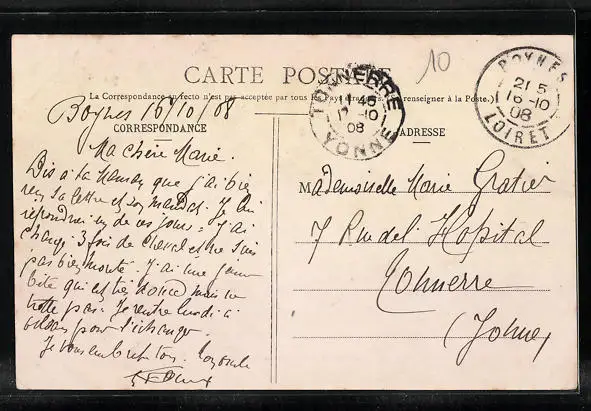 CARTE POSTALE
La Correspondance au recto n'est pas acceptée par tous les Pays étrangers. (Se renseigner à la Poste.)
10
TONNERRE
YONNE
45
17-10
08
BOYNES
LOIRET
21 5
16-10
08
Boynes 16/10/08
CORRESPONDANCE
ADRESSE
Ma chère Marie.
Dis à ta Maman que j'ai bien
reçu sa lettre et son mandat. Je lui
répondrai un de ces jours. J'ai
changé 3 fois de cheval et ne suis
pas bien monté. J'ai une
bête qui est très douce mais ne
trotte pas. Je rentre lundi à
pour l'échanger.
Je vous embrasse
Mademoiselle Marie Gratier
7 Rue de l'Hopital
Tonnerre
(Yonne)